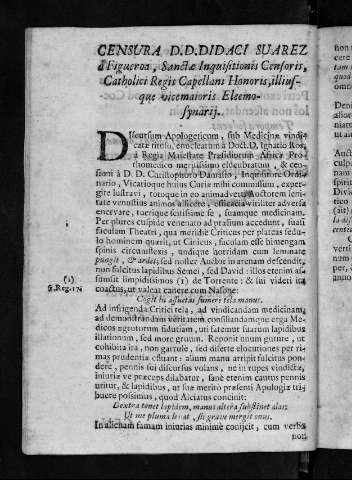 CENSURA D.D.DIDACI SUAREZ
à Figueroa, Sanctæ Inquisitionis Censoris,
Catholici Regis Capellani Honoris, illius-
que vicemaioris Eleemo-
synarij.
DIscursum Apologeticum, sub Medicinæ vindi-
catæ titulo, emucleatum à Doct. D. Ignatio Ros,
à Regia Maiestate Præsidiorum Africæ Pro-
thomedico meritissimo elucubratum, & cen-
sioni à D. D. Chrisophoro Damasio, Inquisitore Ordi-
nario, Vicatioque huius Curiæ mihi commissum, exper-
gire lustravi, totoque in eo animadverti Auctorem leni-
tate venustius animos allicere, efficacia viriliter adversa
enervare, tuerique scitissimè se, suamque medicinam.
Per plures cuspide venenato ad præsium accedunt, suasi
faculam Theatri, qua meridie Criticus per plateas sedu-
lo hominem quærit, ut Cinicus, faculam esse himengam
spinis circumflexis, undique horridam cum lemmate
pungit, & ardet; sed noster Auctor in arenam descendit,
non fulcitus lapidibus Semei, sed David: illos etenim as-
sumsit limpidissimos (1) de Torrente: & sui videri ita
coactus, ut valeat canere cum Nasone:
(1)
Cogit hi assuetas sumere tela manus.
Ad infligenda Critici tela, ad vindicandam medicinam,
ad demonstrandam veritatem consiliandamque erga Me-
dicos ægrotorum fidutiam, uti fatemur suarum lapidibus
illationum, sed more gruum. Reponit unum gutture, ut
cohibita ira, non garrulè, sed diserte elocutiones per ri-
mas prudentiæ effluant: alium manu arripit fulcitus pon-
dere, pennis sui discursus volans, ne in rupes vindictæ,
iniuriæ ve præceps dilabatur, sane etenim cautus pennis
utitur, & lapidibus, ut suæ meritò præsenti Apologiæ tri-
buere possimus, quod Alciatus concinit:
Dextra tenet lapidem, manus altera substinet alas:
Ut me pluma levat, sic grave mergit onus.
In alienam famam iniurias minimè conijcit, cum verba
non